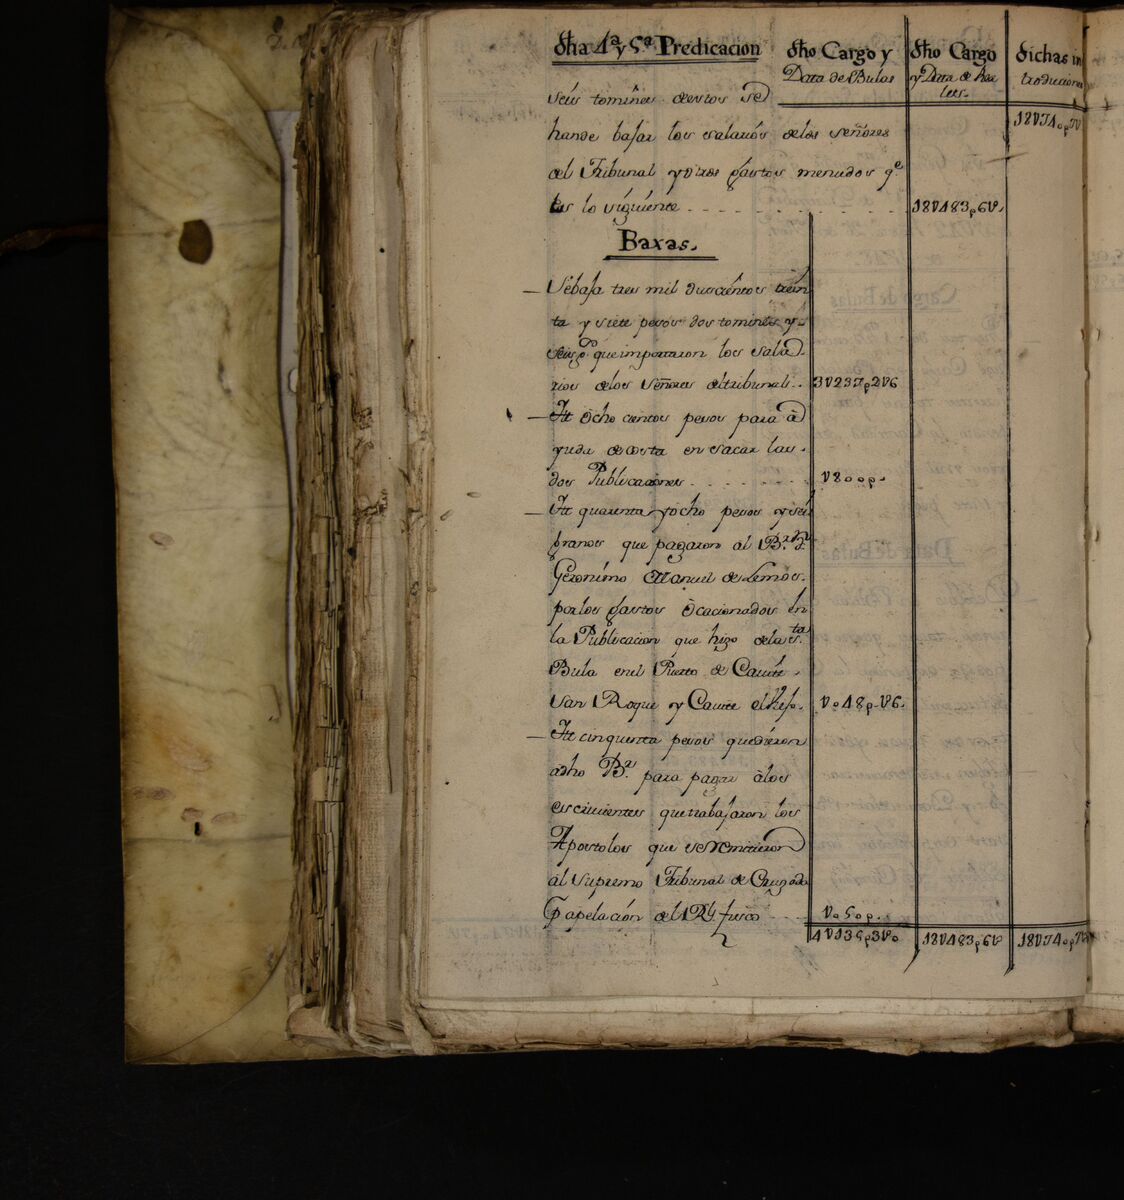 dha 4ª y 5ª Predicacion
dho Cargo y
Data de Bulas
dho Cargo
y Data de
dichas in
troduciones
seis tomines destos se
hande bajar los salarios delos señores
del Tribunal y otros gastos menudos qe
es lo siguiente
18U483p6U
Baxas.
Sebaja tres mil duscientos trein
ta y siete pesos dos tomines y
seis gs que importaron los sala
rios delos Señores deltribunal
3U237p2U6
It Ocho cientos pesos para a
yuda de costa en sacar las
dos Publicaciones
U800p
It quarenta yocho pesos y seis
granos que pagaron al Br dn
Geronimo Manuel de Lemos
porlos gastos Ocacionados en
la Publicacion que hizo dela sta
Bula enel Puerto de Cauite
San Roque y Cauite el
Uo48p.U6
It cinquenta pesos quedieron
adho Br para pagar alos
escriuientes quetrabajaron los
Apostolos que se Remitieron
al Supremo Tribunal de Cruzada
apelacion del Rl fisco
Uo50p
4U135p3Uo
18U483p6U